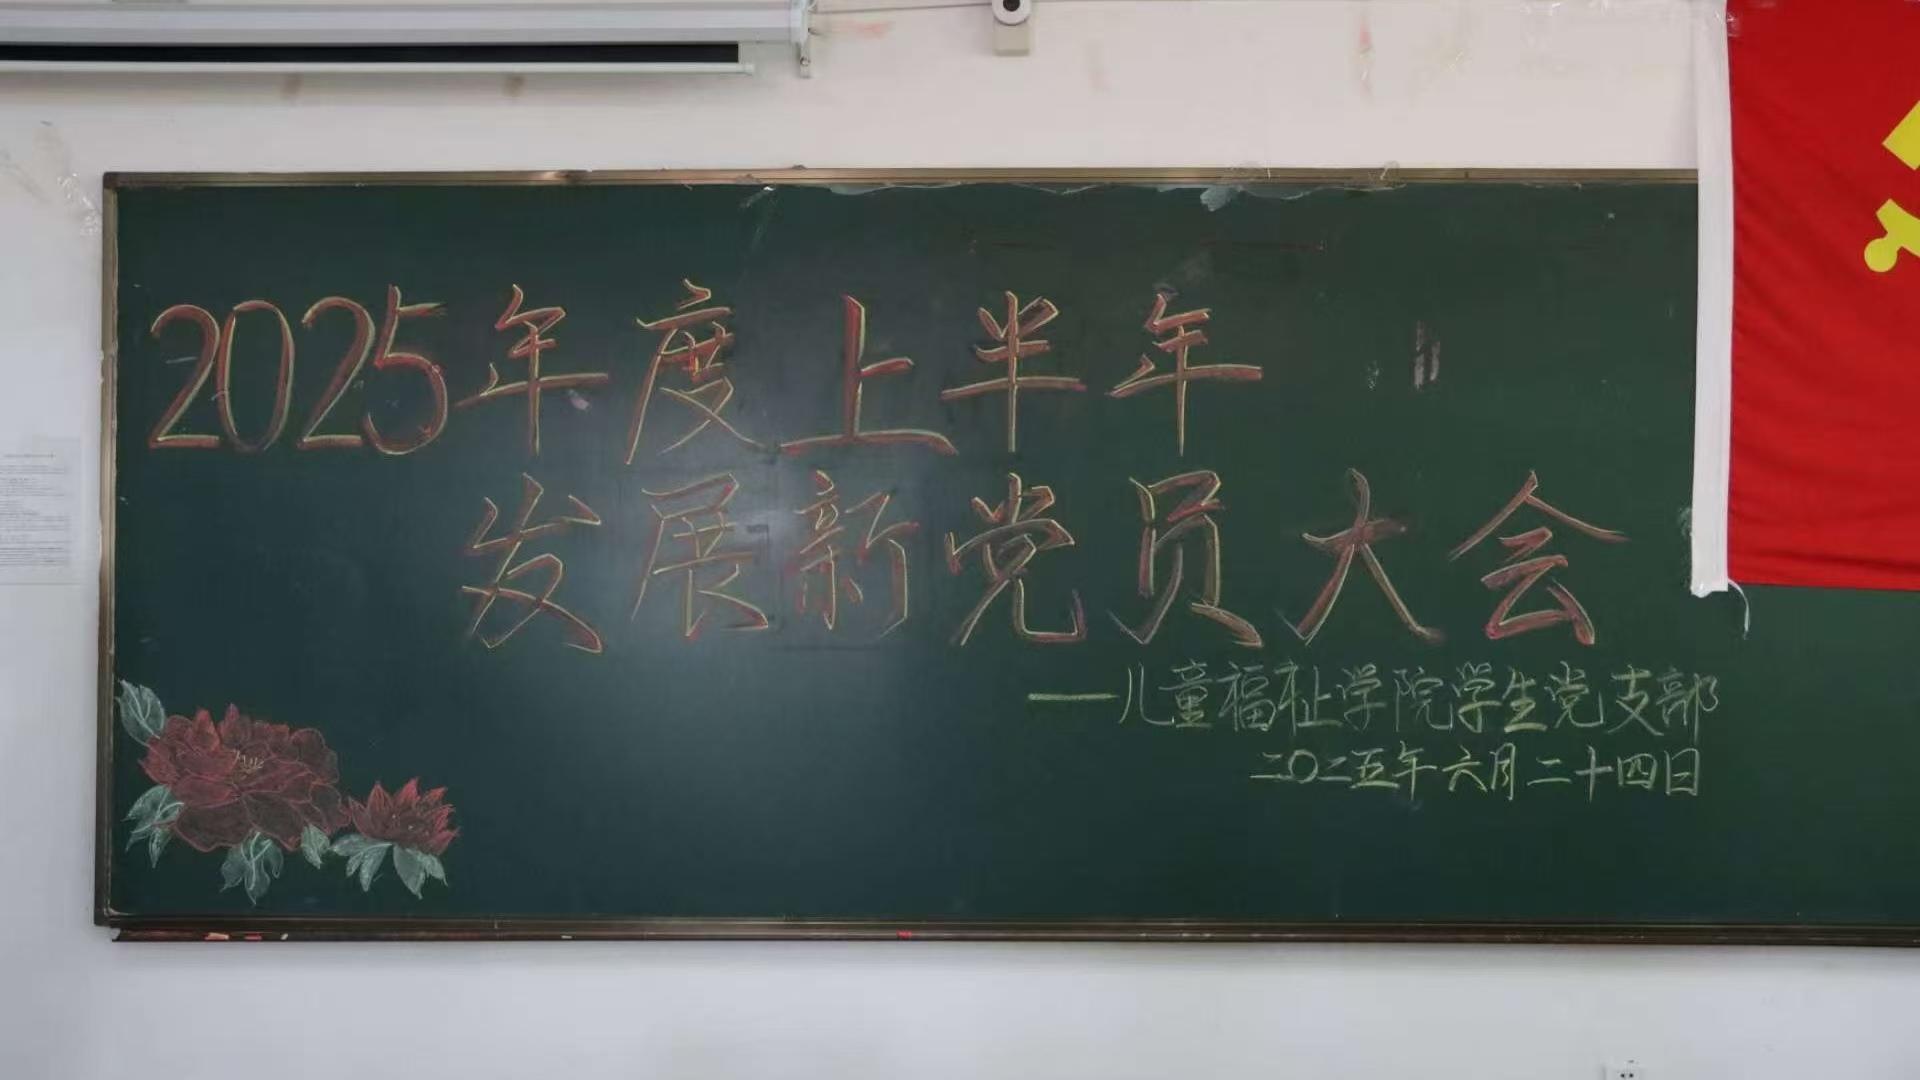 2025年度上半年
发展新党员大会
——儿童福祉学院学生党支部
二〇二五年六月二十四日